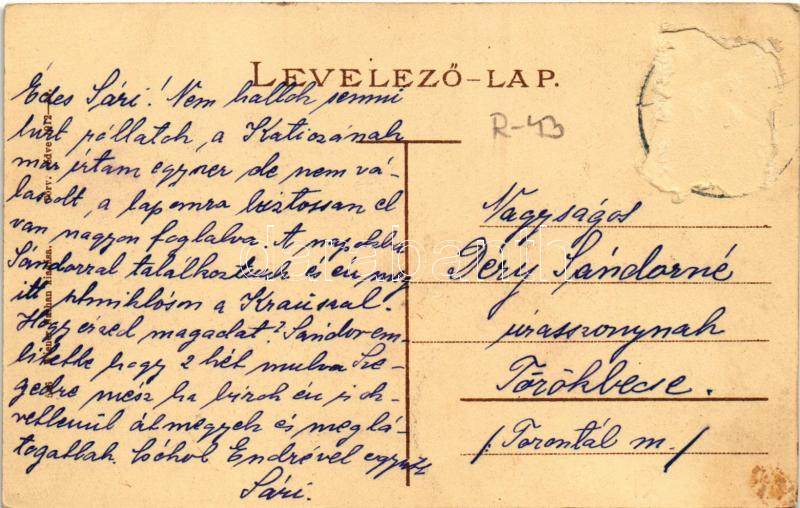 LEVELEZŐ-LAP.
R-43
Édes Sári! Nem hallok semmi
hírt róllatok, a Katiczának
már írtam egyszer de nem vá-
laszolt, a lapomra biztossan el
van nagyon foglalva. A napokba
Sándorral találkoztunk és én meg
itt sztmiklóson a Krausszal.
Hogy érzed magadat? Sándor em-
lítette hogy 2 hét mulva Sze-
gedre mész ha birok én is ok-
vetlenül átmegyek és meglá-
togatlak. Csókol Endrével együtt
Sári.
Nagyságos
Dery Sándorné
úrasszonynak
Törökbecse.
/Torontál m./
darabanth